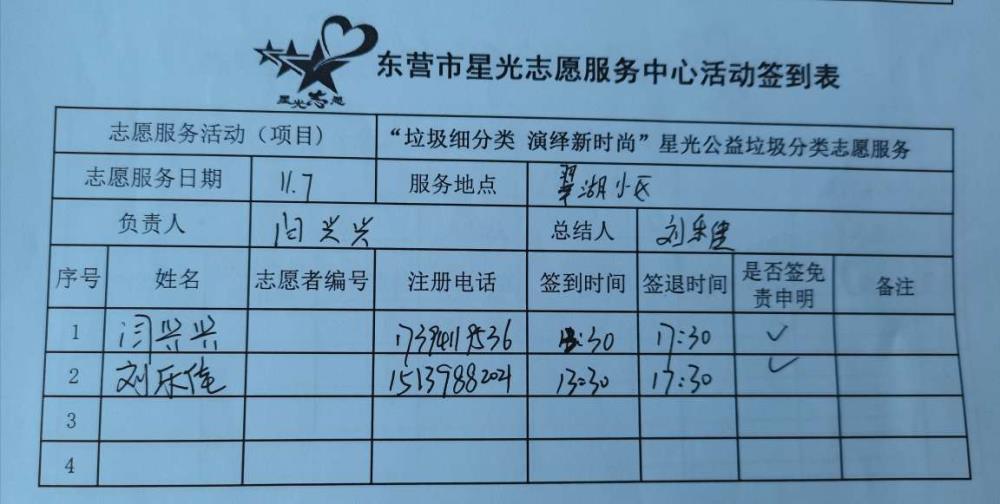 星光志愿
东营市星光志愿服务中心活动签到表
志愿服务活动（项目） “垃圾细分类 演绎新时尚”星光公益垃圾分类志愿服务
志愿服务日期 11.7 服务地点 翠湖小区
负责人 闫兴兴 总结人 刘乐佳
序号 姓名 志愿者编号 注册电话 签到时间 签退时间 是否签免责申明 备注
1 闫兴兴 :30 17:30 ✓
2 刘乐佳 15139882021 13:30 17:30 ✓
3
4